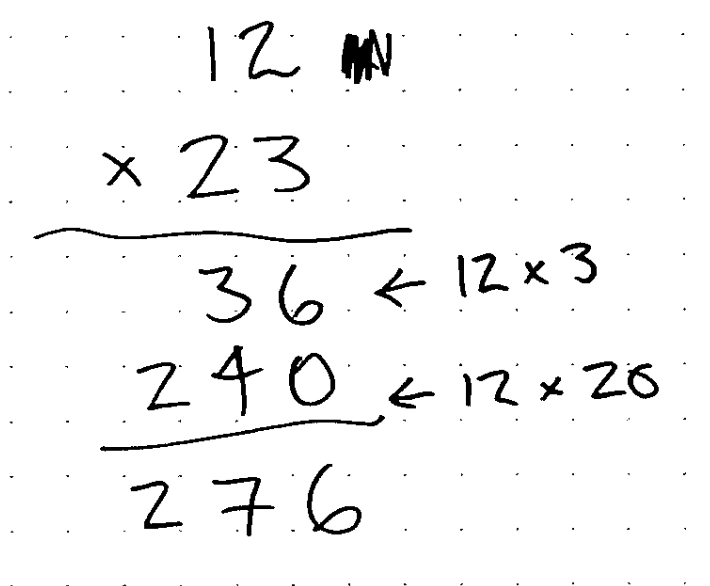 12
× 23
36 ← 12 × 3
240 ← 12 × 20
276